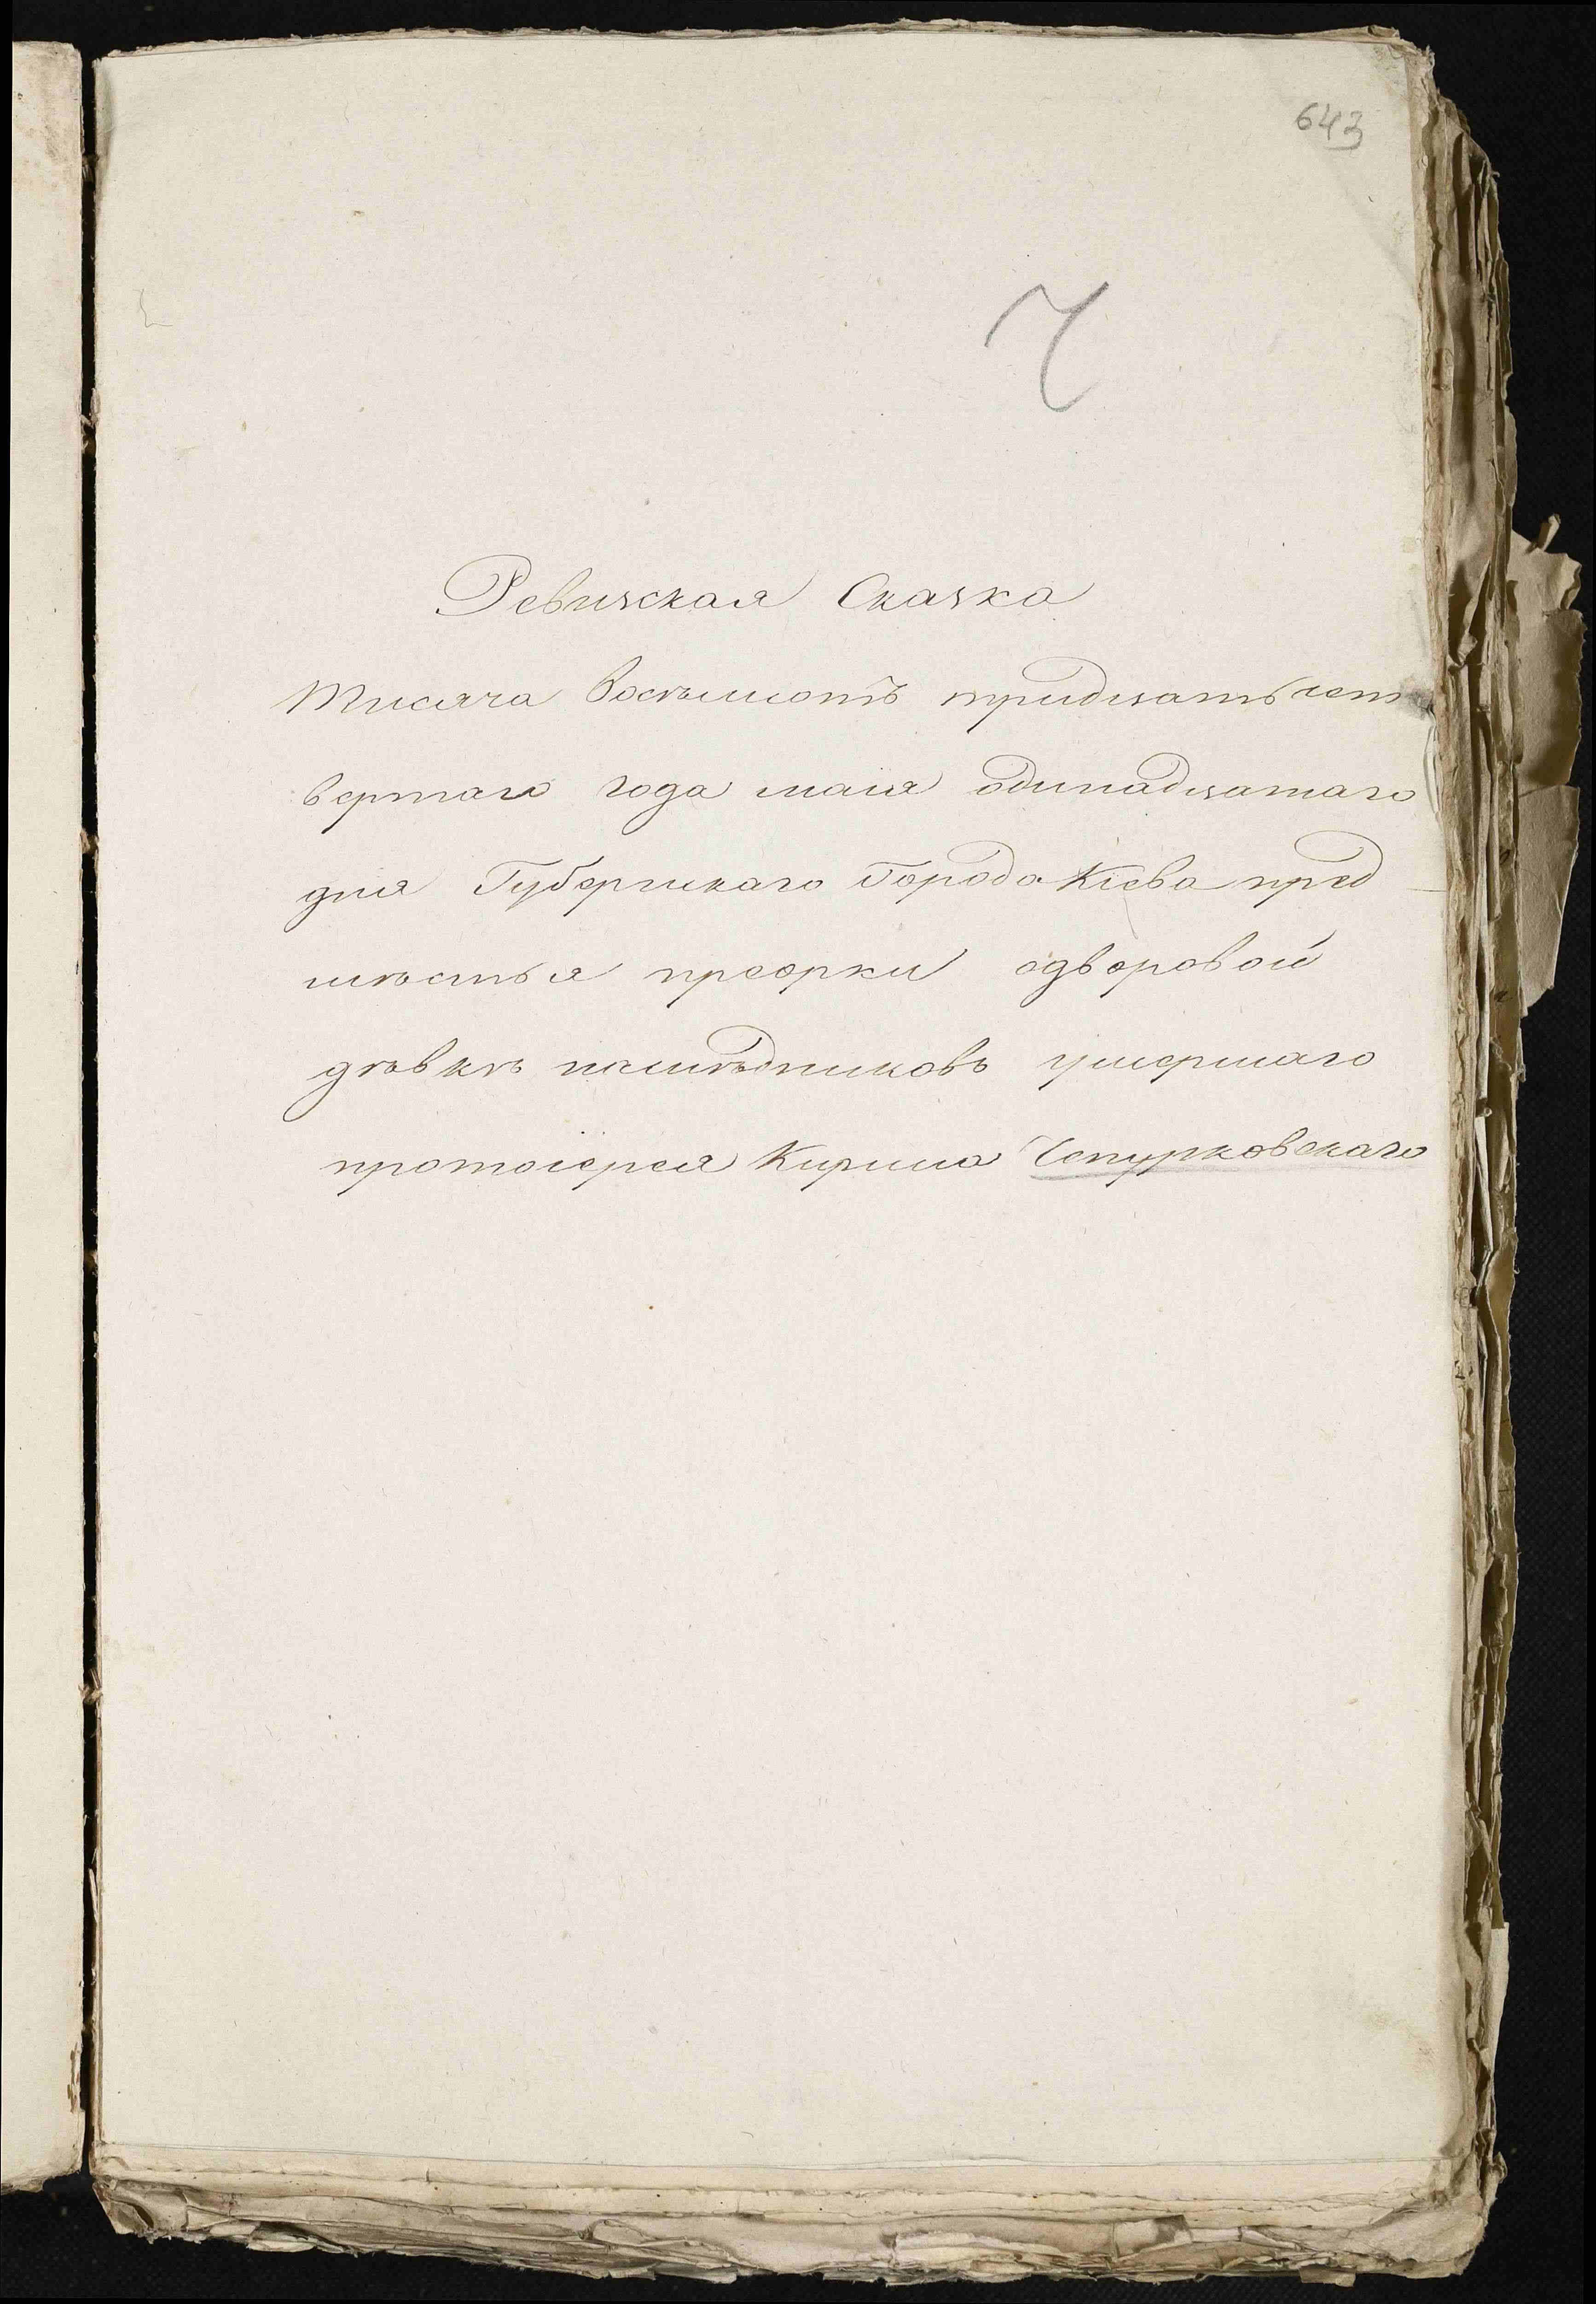 643
Ч
Ревизская Сказка
Тисяча восѣмьсотъ тридцать чет
вертаго года маия одинадцатаго
дня Губернскаго Города Кіева пред
мѣстья преорки одворовой
дѣвкѣ наслѣдниковъ умершаго
протоіерея Кирила Чепурковскаго